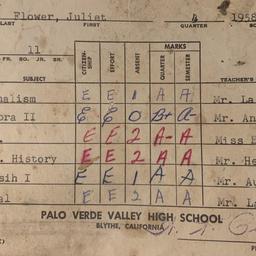 Flower, Juliet 4 1958
LAST FIRST QUARTER
11 MARKS
FR. SO. JR. SR. CITIZEN-SHIP EFFORT ABSENT QUARTER SEMESTER
SUBJECT TEACHER'S
nalism E E 1 A A Mr. La
ora II E E 0 B+ A- Mr. An
E E 2 A- A Miss
. History E E 2 A A Mr. He
sih I E E 1 A A Mr. Au
al E E 2 A A Mr. La
PALO VERDE VALLEY HIGH SCHOOL
BLYTHE, CALIFORNIA